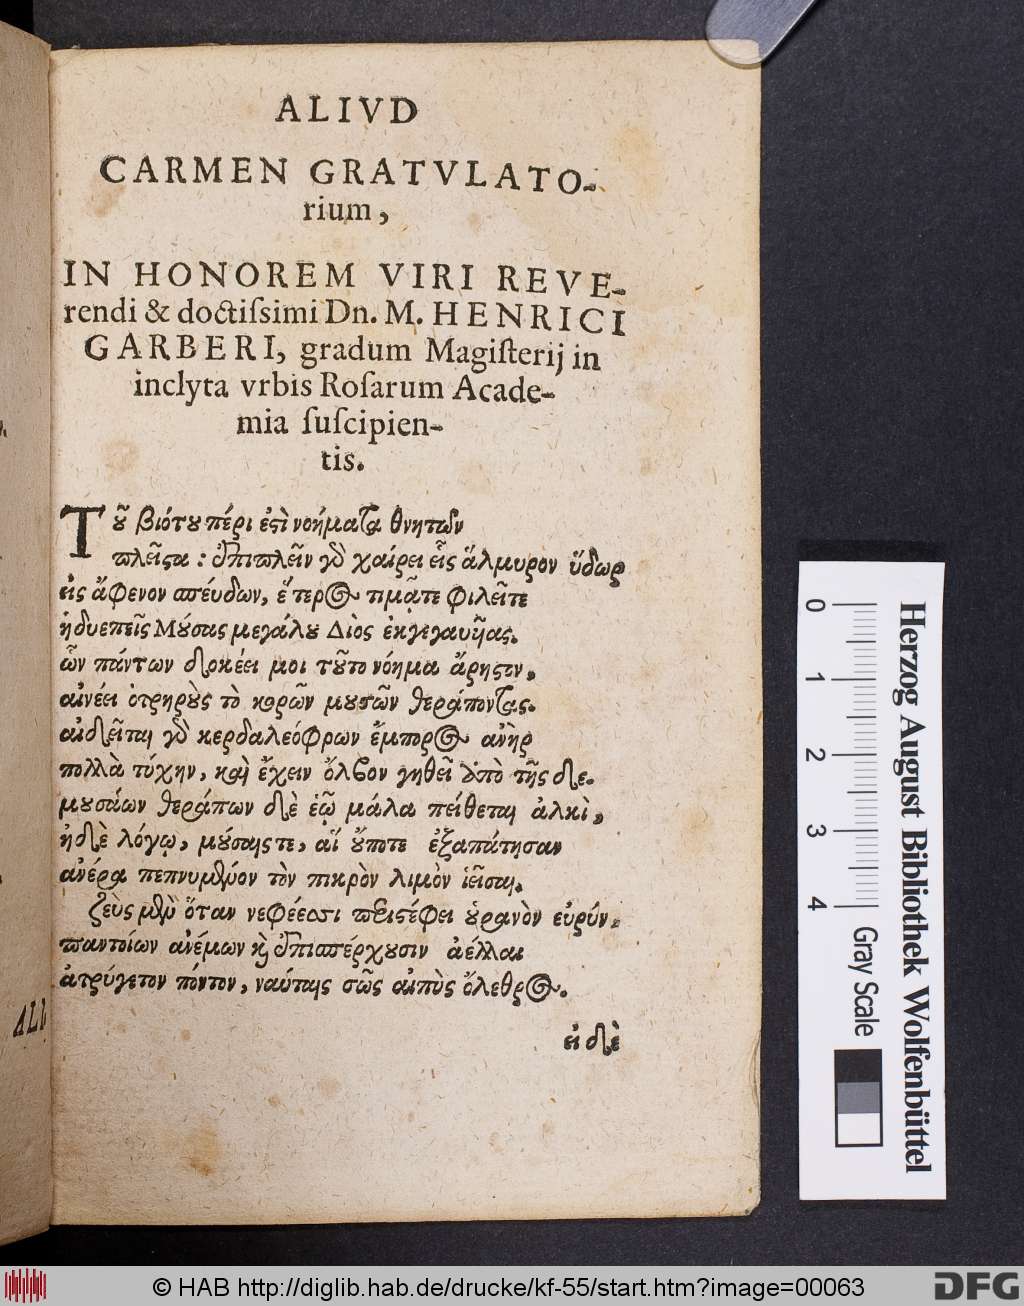 ALIVD
CARMEN GRATVLATO-
rium,
IN HONOREM VIRI REVE-
rendi & doctiſsimi Dn. M. HENRICI
GARBERI, gradum Magiſterij in
inclyta vrbis Roſarum Acade-
mia ſuſcipien-
tis.
Τοῦ βιότου πέρι ἐστὶ νοήματα θνητῶν
πλεῖστα : ἐπιπλεῖν γὸ χαίρει εἷς ἅλμυρον ὕδωρ
εἰς ἄφενον σπέυδων, ἕτερος τιμᾷτε φιλεῖτε
ἡδυεπεῖς Μόυσας μεγάλου Διὸς ἐκγεγαυῄας.
ὧν πάντων δοκέει μοι τοῦτο νόημα ἄρηστιν,
αἰνέει ὀτρηροὺς τὸ κορῶν μουσῶν θεράποντας.
αἰδεῖται γὸ κερδαλεόφρων ἔμπορος ἀνὴρ
πολλὰ τύχην, καὶ ἔχειν ὄλβον γηθεῖ ὑπὸ τῆς δε.
μουσάων θεράπων δὲ ἑῷ μάλα πείθεται ἀλκὶ,
ἠδὲ λόγῳ, μόυσαις τε, αἵ ὔποτε ἐξαπάτησαν
ἀνέρα πεπνυμένον τὸν πικρὸν λιμὸν ἱεῖσαι.
ζεὺς μὲν ὅταν νεφέεσσι περιστέφει οὐρανὸν εὐρύν,
παντοίων ἀνέμων καὶ ἐπισπέρχουσιν ἀέλλαι
ἀτρύγετον πόντον, ναύταις σῶς αἰπὺς ὄλεθρος.
εἰ δὲ
ALI
0 1 2 3 4
Gray Scale
Herzog August Bibliothek Wolfenbüttel
© HAB http://diglib.hab.de/drucke/kf-55/start.htm?image=00063
DFG